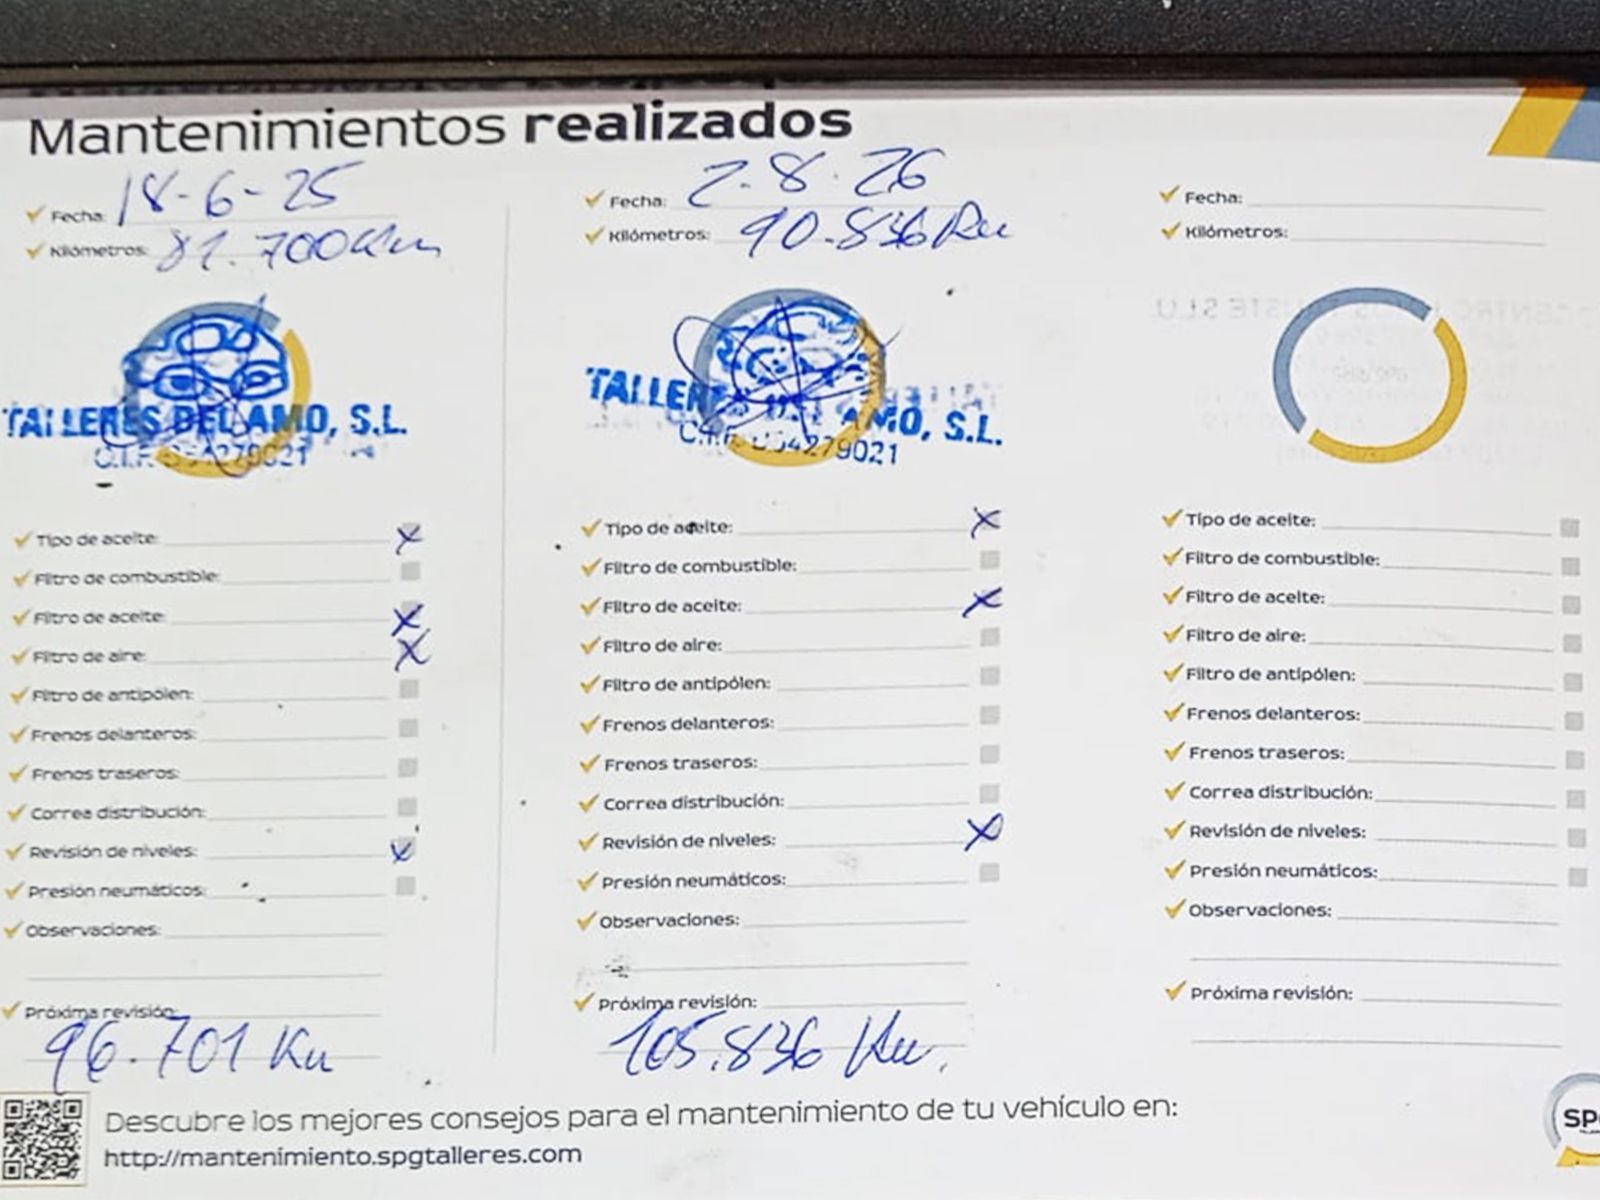 Mantenimientos realizados
Fecha: 18-6-25
Kilómetros: 81.700 Km
TALLERES DEL AMO, S.L.
C.I.F. 54279021
Tipo de aceite: X
Filtro de combustible:
Filtro de aceite: X
Filtro de aire: X
Filtro de antipólen:
Frenos delanteros:
Frenos traseros:
Correa distribución:
Revisión de niveles: X
Presión neumáticos:
Observaciones:
Próxima revisión:
96.701 Km
Fecha: 2.8.26
Kilómetros: 90.836 Km
TALLER AMO, S.L.
C.I.F. 54279021
Tipo de aceite: X
Filtro de combustible:
Filtro de aceite: X
Filtro de aire:
Filtro de antipólen:
Frenos delanteros:
Frenos traseros:
Correa distribución:
Revisión de niveles: X
Presión neumáticos:
Observaciones:
Próxima revisión:
105.836 Km.
Fecha:
Kilómetros:
Tipo de aceite:
Filtro de combustible:
Filtro de aceite:
Filtro de aire:
Filtro de antipólen:
Frenos delanteros:
Frenos traseros:
Correa distribución:
Revisión de niveles:
Presión neumáticos:
Observaciones:
Próxima revisión:
Descubre los mejores consejos para el mantenimiento de tu vehículo en:
http://mantenimiento.spgtalleres.com